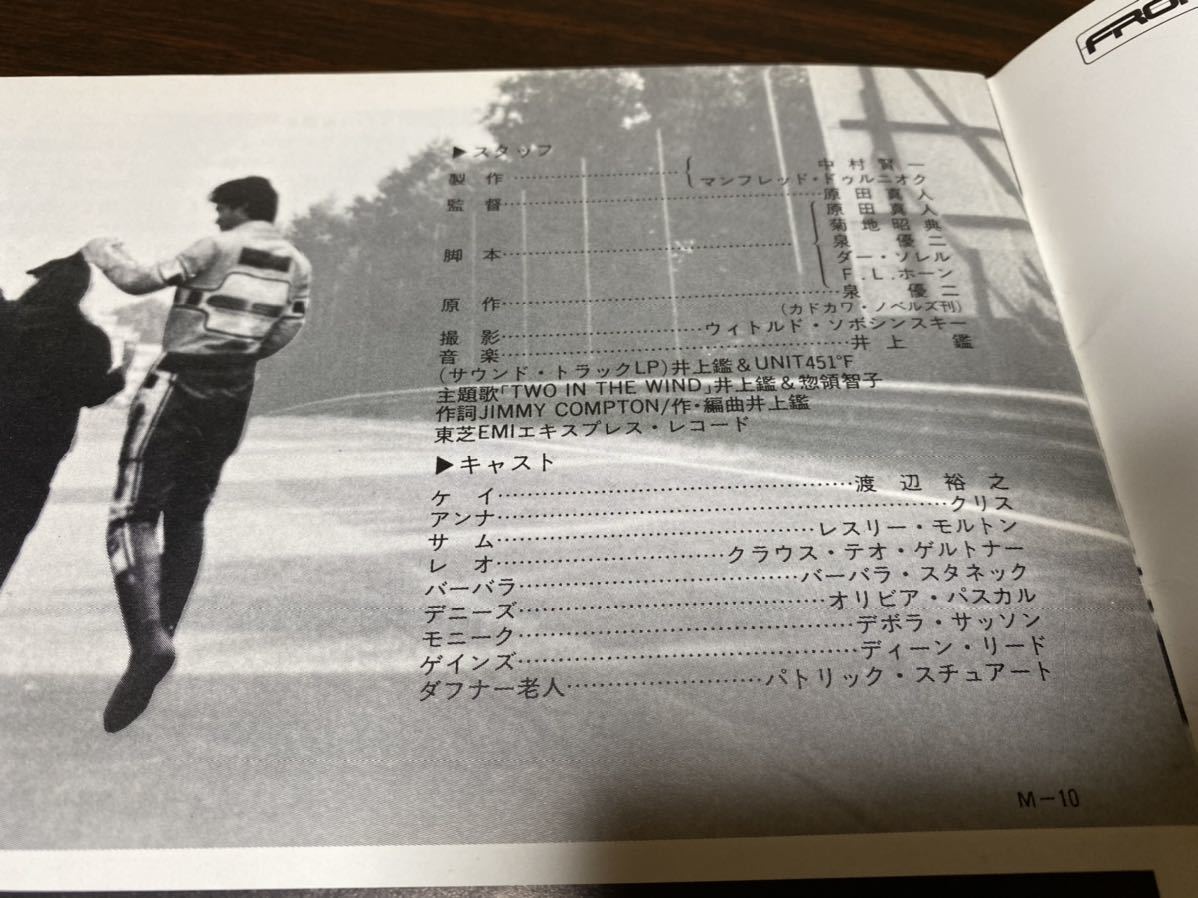 ▶スタッフ
製作……{中村賢一
マンフレッド・ドゥルニオク
監督……原田真人
脚本……{原田真人
菊地昭典
泉優二
ダー・ソレル
F.L.ホーン
原作……泉優二
(カドカワ・ノベルズ刊)
撮影……ウィトルド・ソボシンスキー
音楽……井上鑑
(サウンド・トラックLP)井上鑑&UNIT451°F
主題歌「TWO IN THE WIND」井上鑑&惣領智子
作詞JIMMY COMPTON/作・編曲井上鑑
東芝EMIエキスプレス・レコード
▶キャスト
ケイ……渡辺裕之
アンナ……クリス
サム……レスリー・モルトン
レオ……クラウス・テオ・ゲルトナー
バーバラ……バーバラ・スタネック
デニーズ……オリビア・パスカル
モニーク……デボラ・サッソン
ゲインズ……ディーン・リード
ダフナー老人……パトリック・スチュアート
M-10